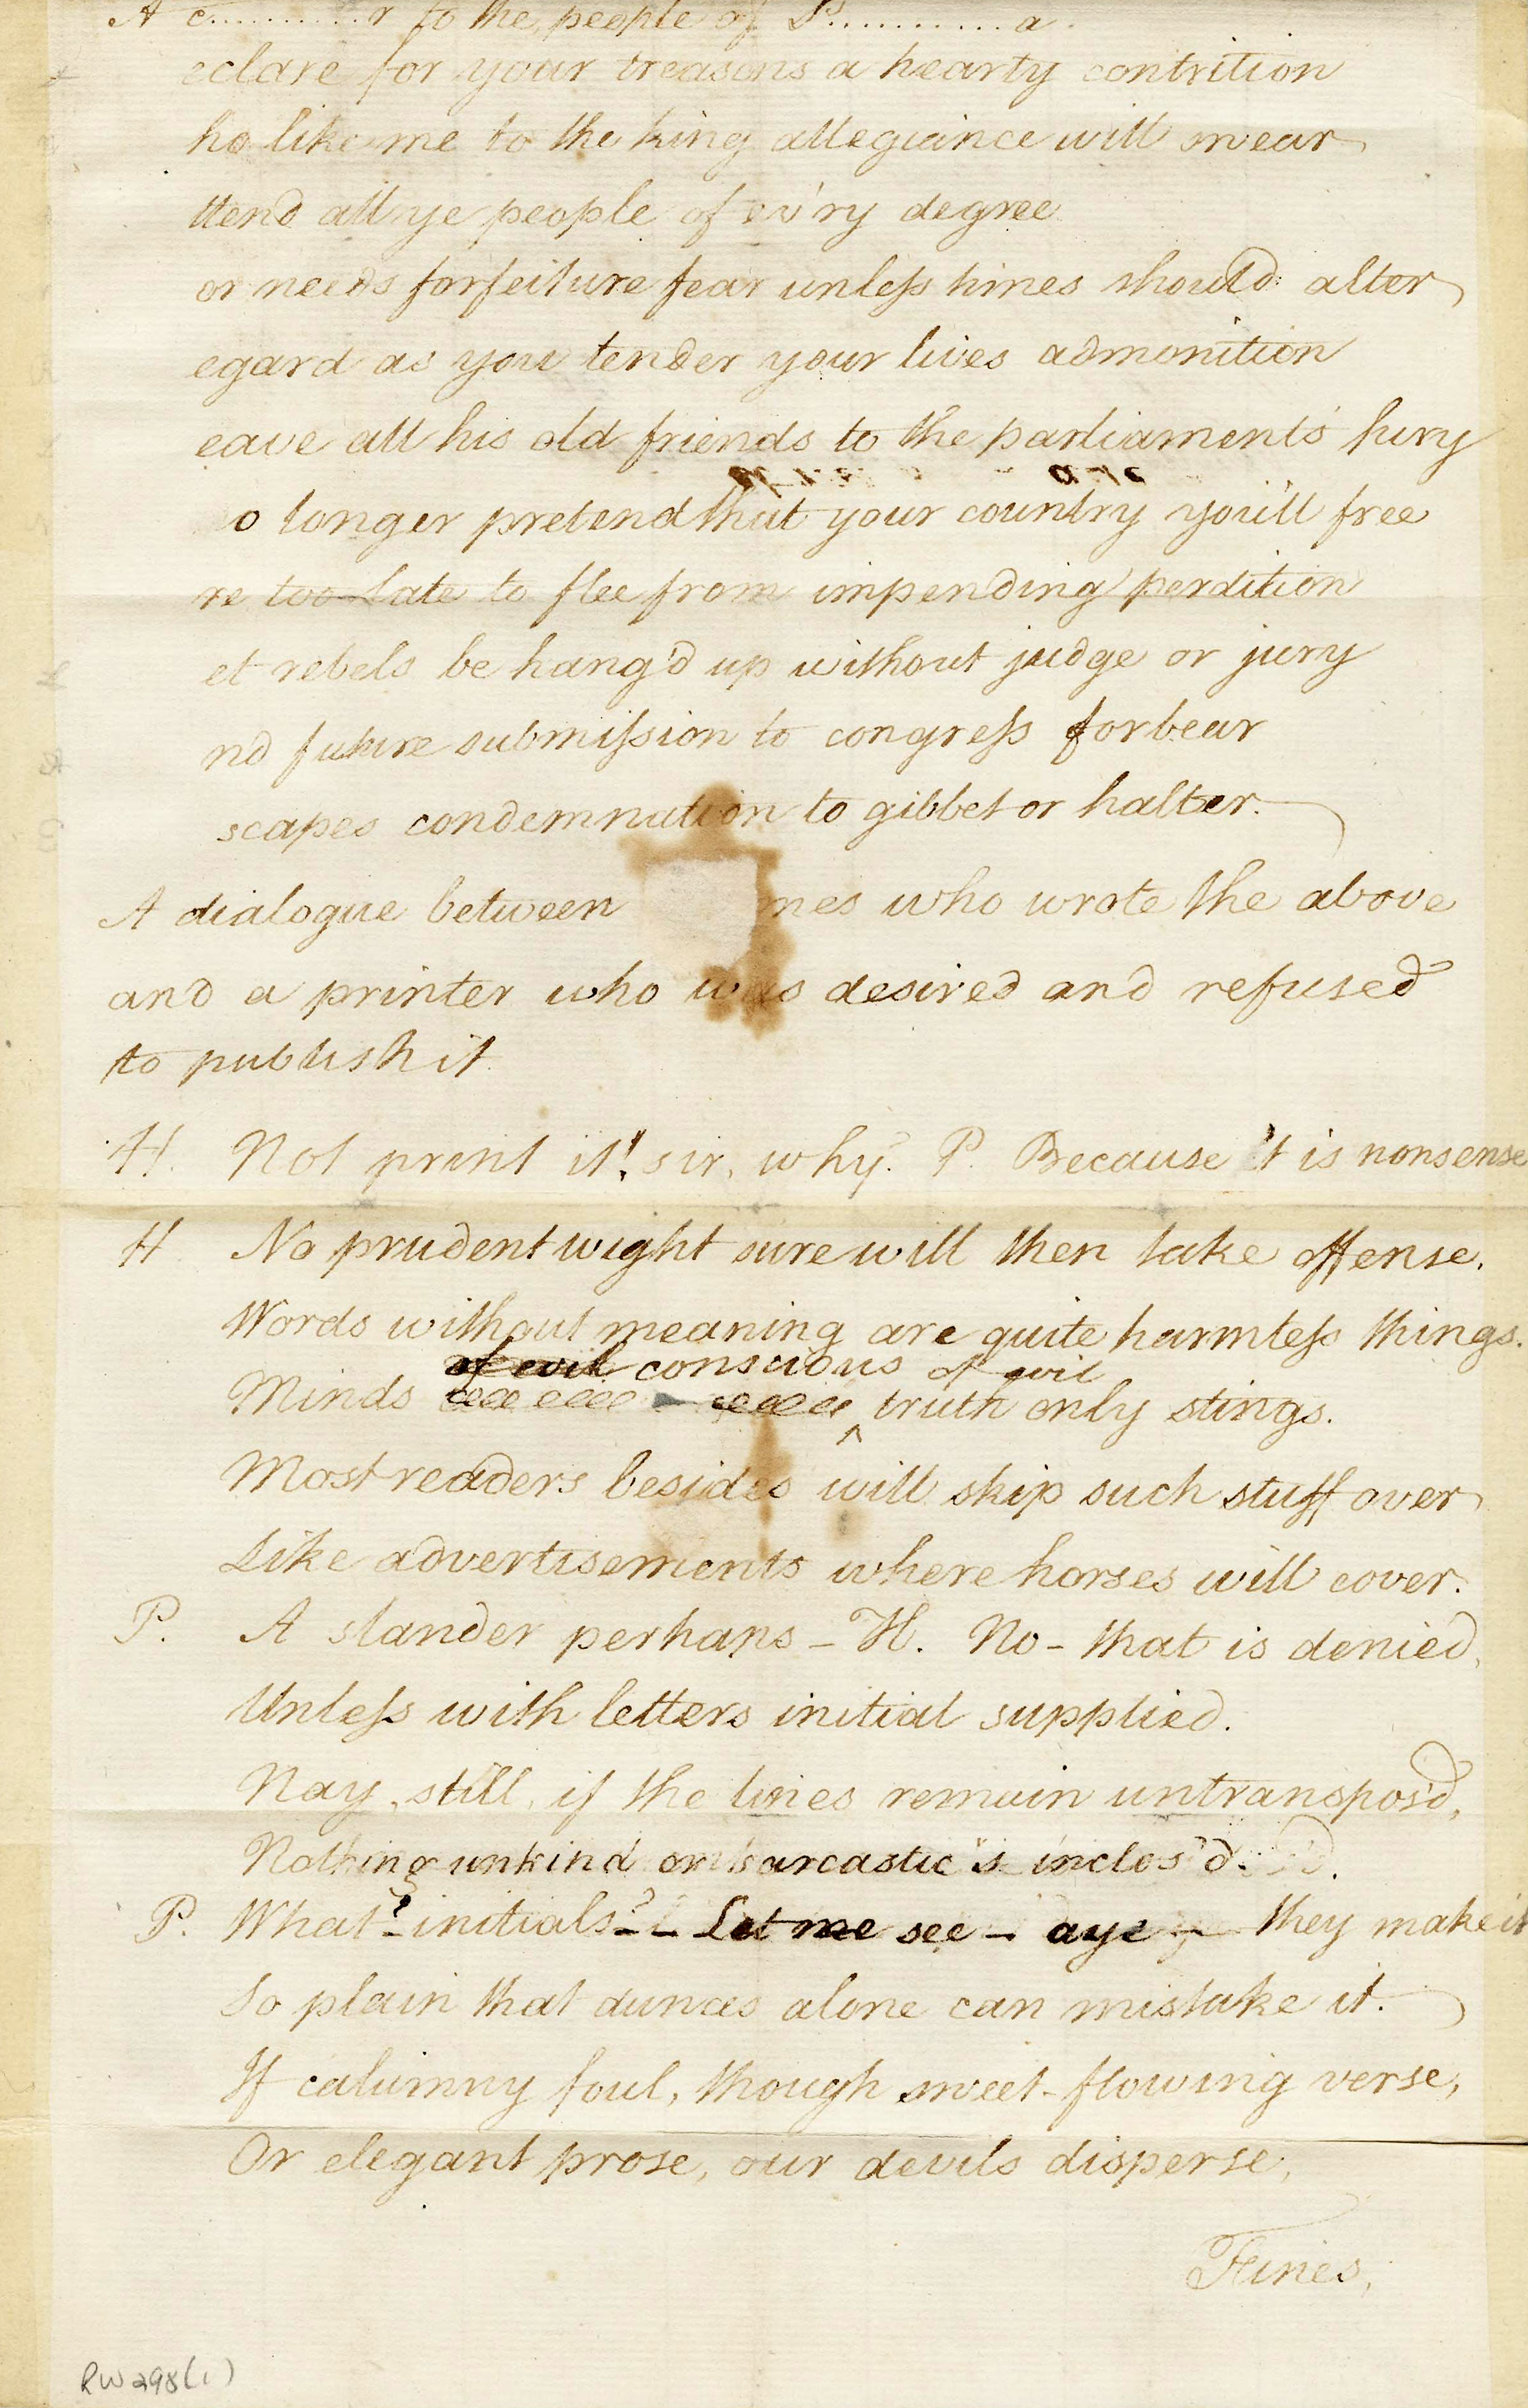 A c..........r to the people of P...........a.
eclare for your treasons a hearty contrition
ho like me to the king allegiance will swear
ttend all ye people of ev'ry degree
or needs forfeiture fear unless times should alter
egard as you tender your lives admonition
eave all his old friends to the parliament's fury
o longer pretend that your country you'll free
re too late to flee from impending perdition
et rebels be hang'd up without judge or jury
nd future submission to congress forbear
scapes condemnation to gibbet or halter.
A dialogue between mes who wrote the above
and a printer who was desired and refused
to publish it
H. Not print it! sir, why? P. Because 't is nonsense
H No prudent wight sure will then take offense.
Words without meaning are quite harmless things.
of evil conscious of evil
Minds truth only stings.
Most readers besides will skip such stuff over
Like advertisements where horses will cover.
P. A slander perhaps – H. No – that is denied,
Unless with letters initial supplied.
Nay, still, if the lines remain untranspos'd,
Nothing unkind or sarcastic is inclos'd.
P. What? – initials? – – Let me see – aye – they make it
So plain that dunces alone can mistake it.
If calumny foul, though sweet-flowing verse,
Or elegant prose, our devils disperse,
RW298(1)